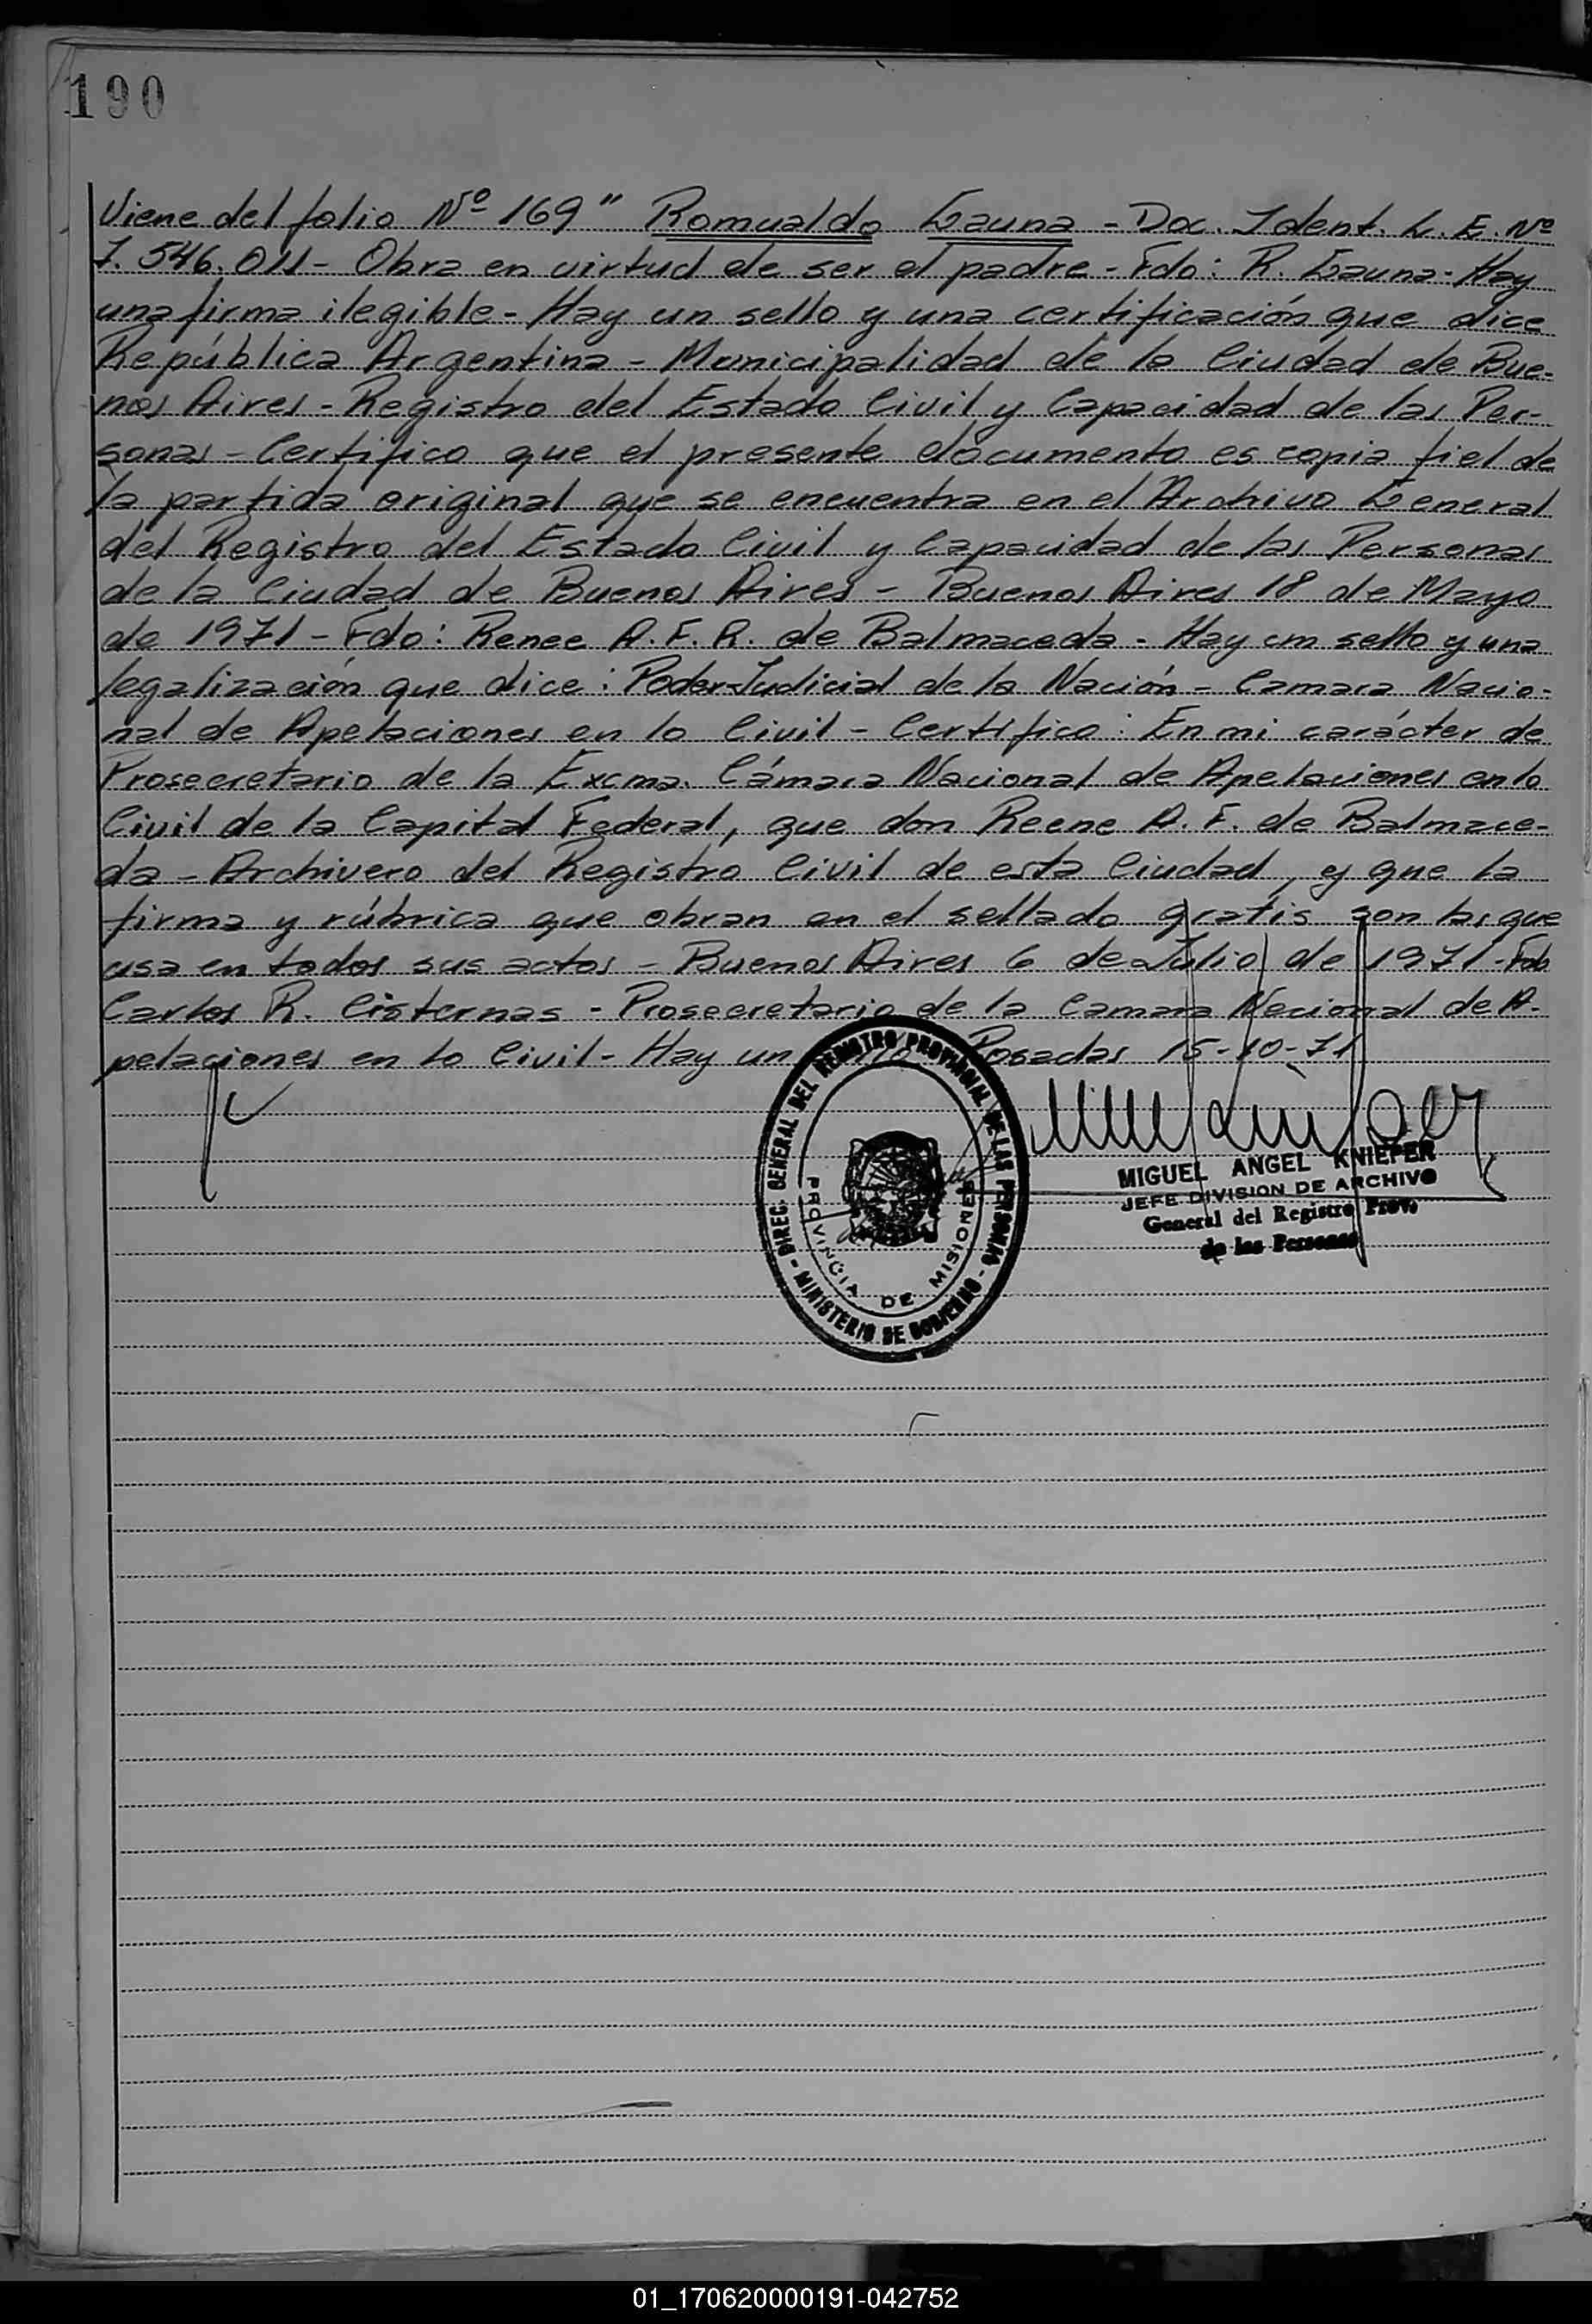 190
Viene del folio Nº 169" Romualdo Gauna - Doc. Ident. L. E. Nº
7.546.011- Obra en virtud de ser el padre - Fdo: R. Gauna - Hay
una firma ilegible - Hay un sello y una certificación que dice
República Argentina - Municipalidad de la Ciudad de Bue-
nos Aires - Registro del Estado Civil y Capacidad de las Per-
sonas - Certifico que el presente documento es copia fiel de
la partida original que se encuentra en el Archivo General
del Registro del Estado Civil y Capacidad de las Personas
de la Ciudad de Buenos Aires - Buenos Aires 18 de Mayo
de 1971 - Fdo: Renee A. F. R. de Balmaceda - Hay un sello y una
legalización que dice: Poder Judicial de la Nación - Camara Nacio-
nal de Apelaciones en lo Civil - Certifico: En mi carácter de
Prosecretario de la Excma. Cámara Nacional de Apelaciones en lo
Civil de la Capital Federal, que don Reene A. F. de Balmace-
da - Archivero del Registro Civil de esta Ciudad, y que la
firma y rúbrica que obran en el sellado gratis son las que
usa en todos sus actos - Buenos Aires 6 de Julio de 1971 - Fdo
Carlos R. Cisternas - Prosecretario de la Camara Nacional de A-
pelaciones en lo Civil - Hay un Posadas 15-10-71
DIREC. GENERAL DEL REGISTRO PROVINCIAL DE LAS PERSONAS - MINISTERIO DE GOBIERNO -
PROVINCIA DE MISIONES
MIGUEL ANGEL KNIEPER
JEFE DIVISION DE ARCHIVO
General del Registro Prov.
de las Personas
01_170620000191-042752